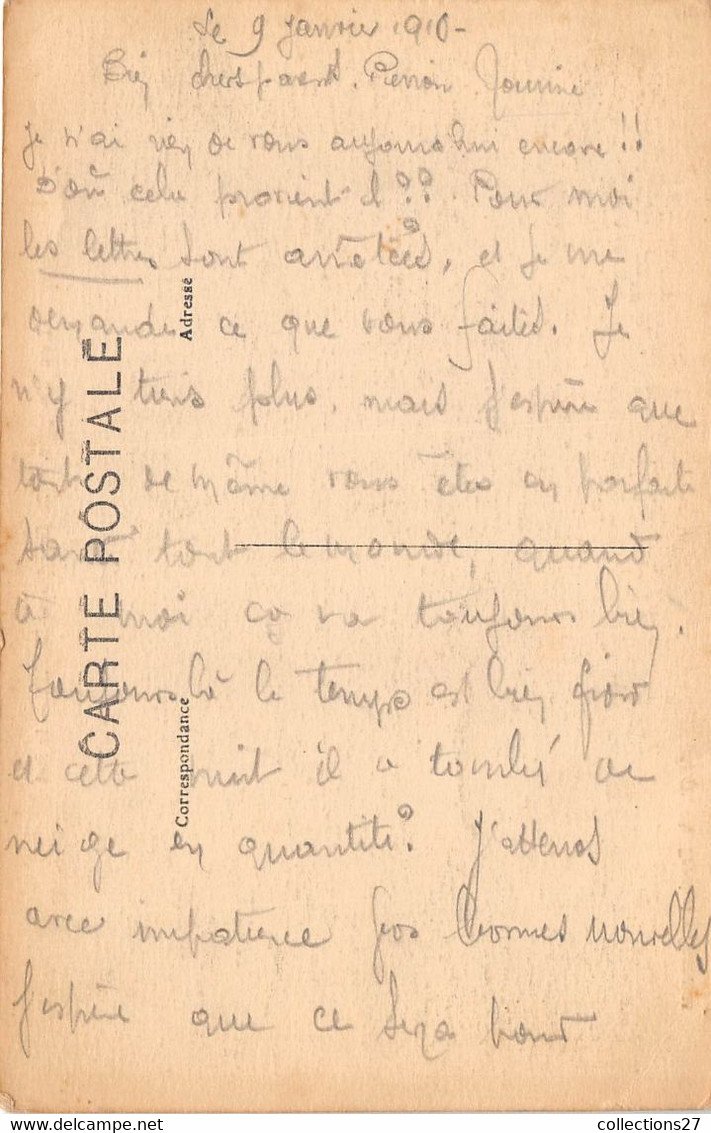 Le 9 Janvier 1910-
Bien chers parents. Pierron
Je n'ai rien de vous aujourd'hui encore !!
D'où cela provient il ?? Pour moi
les lettres sont arrêtées, et je me
demande ce que vous faites. Je
n'y tiens plus, mais j'espère que
tout de même vous êtes en parfaite
santé tout le monde, quand
à moi ça va toujours bien.
le temps est bien froid
et cette nuit il a tombé de
neige en quantité. J'attends
avec impatience vos bonnes nouvelles
J'espère que ce sera pour
CARTE POSTALE
Correspondance
Adresse
collections27